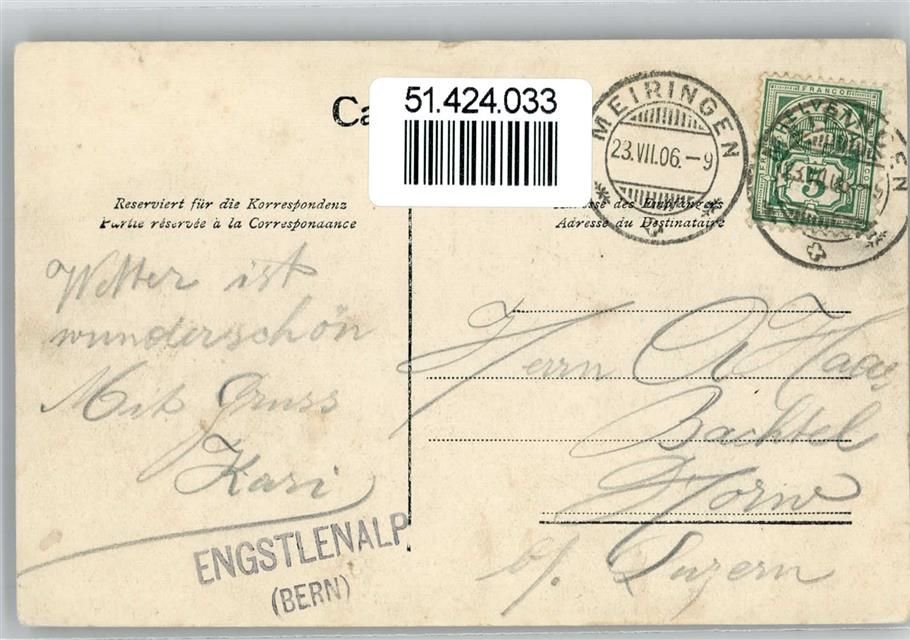 51.424.033
Ca
MEIRINGEN
23.VII.06.-9
FRANCO
HELVETIA
5
Reserviert für die Korrespondenz
Partie réservée à la Correspondance
Adresse des Empfängers
Adresse du Destinataire
Wetter ist
wunderschön
Mit Gruss
Kari
Herrn A Haas
Bachtel
Horw
b/. Luzern
ENGSTLENALP
(BERN)